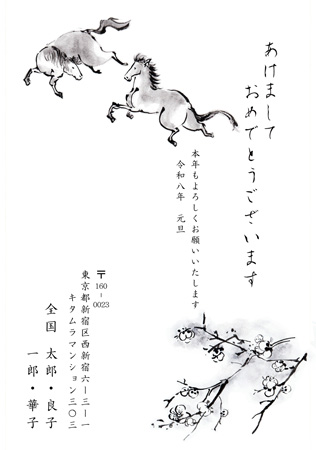 あけまして
おめでとうございます
本年もよろしくお願いいたします
令和八年　元旦
〒160-0023
東京都新宿区西新宿六ー三ー一
キタムラマンション三〇三
全国　太郎・良子
一郎・華子